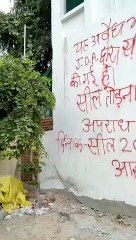 यह अवैध
J.D.A द्वारा
की गई है।
सील तोड़ना
अपराध
दिनांक सील 20